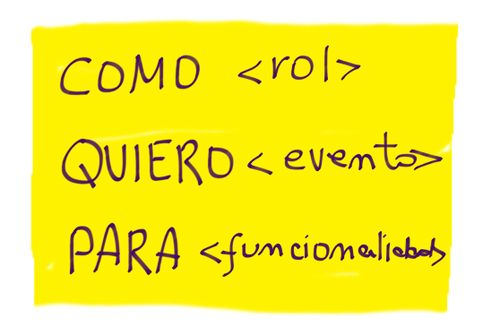 COMO <rol>
QUIERO <evento>
PARA <funcionalidad>